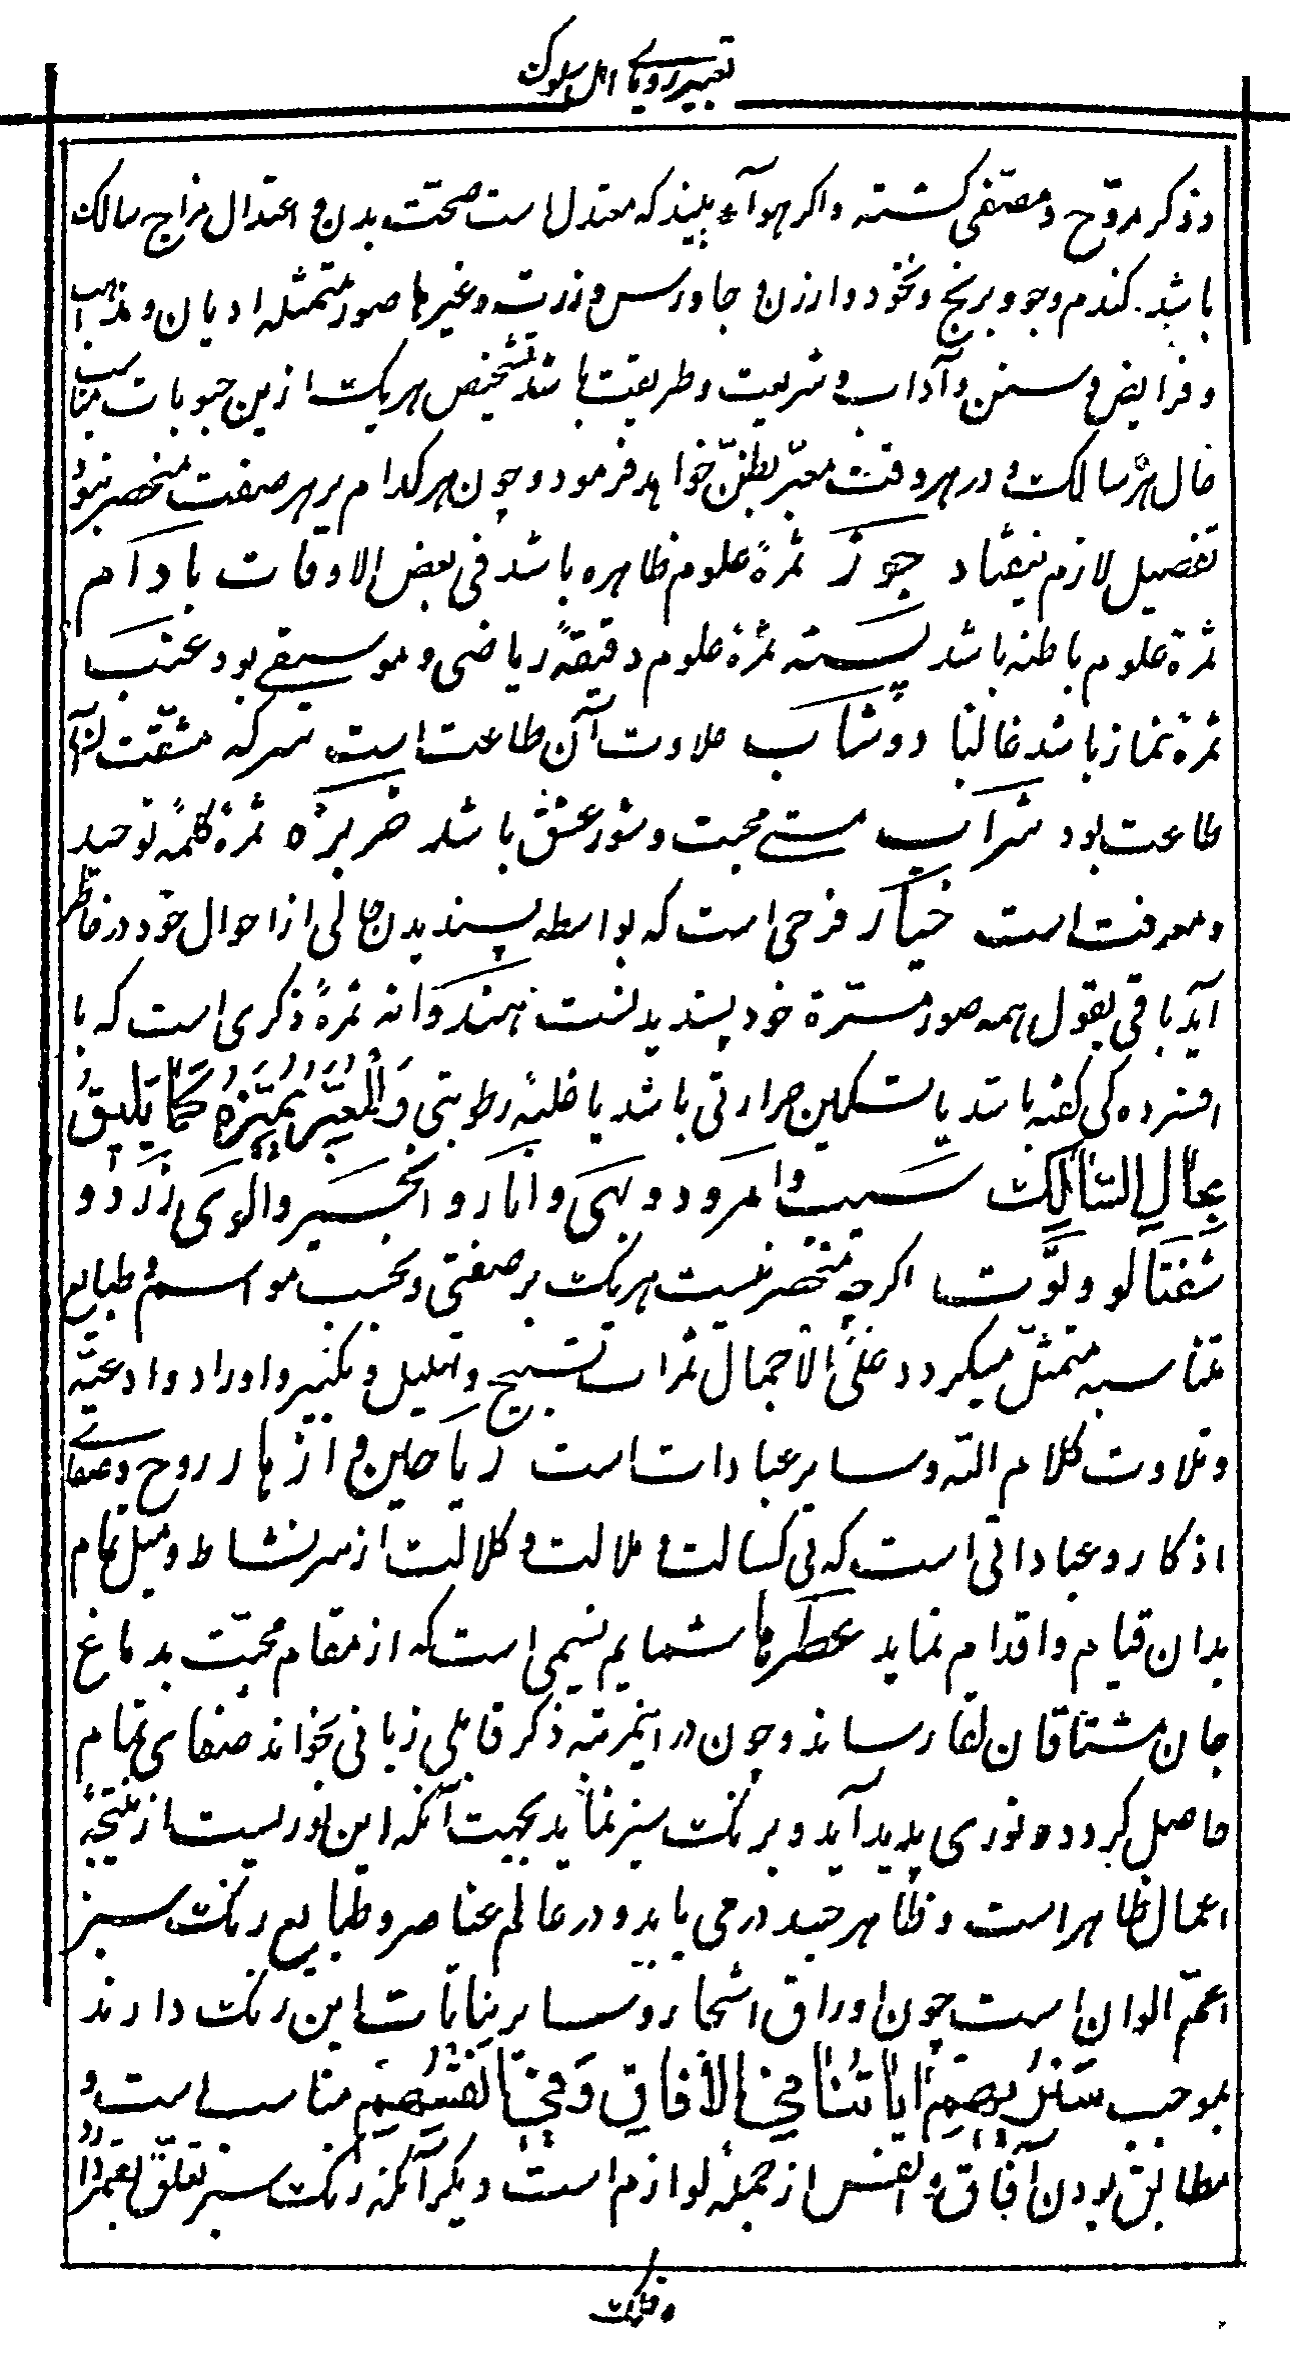 تعبیر رویاے اهل سلوک
و ذکر مروّح و مصفّی کشته و اکر هوآء بیند که معتدل است صحّت بدن و اعتدال مزاج سالک
باشد. کندم و جو و برنج و نخود و ارزن و جاورس و زرت و غیرها صور متمثله ادیان و مذاهب
و فرایض و سنن و آداب و شریعت و طریقت باشد تشخیص هریک ازین حبوبات مناسب
حال هر سالک و در هر وقت معبّر بظنّ خواهد فرمود و چون هر کدام بر هر صفت منحصر نبود
تفصیل لازم نیفتاد جوز ثمرهٔ علوم ظاهره باشد فی بعض الاوقات بادام
ثمرهٔ علوم باطنه باشد پسته ثمرهٔ علوم دقیقهٔ ریاضی و موسیقے بود عنب
ثمرهٔ نماز باشد غالبا دوشاب حلاوت آن طاعت است سرکه مشقّت آن
طاعت بود شراب مستے محبت و شور عشق باشد خربزه ثمرهٔ کلمهٔ توحید
و معرفت است خیار فرحی است که بواسطه پسندیدن حالی از احوال خود در خاطر
آید باقی بقول همه صور مسرّة خود پسندیدنست هندوانه ثمرهٔ ذکری است که با
افسرده کی کفته باشد یا تسکین حرارتی باشد یا غلبهٔ رطوبتی وَالْمُعَبِّرُ یُمَیِّزُهُ کَمَا یَلِیقُ
بِحَالِ السَّالِکِ سیب و امرود و بهی و انار و انجیر و الوی زرد و
شفتالو و توت اکرچه منحصر نیست هریک بر صفتی و بحسب مواسم و طبایع
متناسبه متمثّل میکردد علی الاجمال ثمرات تسبیح و تهلیل و تکبیر و اوراد و ادعیّه
و تلاوت کلام اللّه و سایر عبادات است ریاحین و ازهار روح و صفاے
اذکار و عباداتی است که بی کسالت و ملالت و کلالت از سر نشاط و میل تمام
بدان قیام و اقدام نماید عطرها شمایم نسیمی است که از مقام محبّت بدماغ
جان مشتاقان لقا رساند و چون در اینمرتبه ذکر قابلی زبانی بخواند صفای تمام
حاصل کردد و نوری پدید آید و برنک سبز نماید بجهت آنکه این نوریست از نتیجهٔ
اعمال ظاهر است و ظاهر جسد در می یابد و در عالم عناصر و طبایع رنک سبز
اعمّ الوان است چون اوراق اشجار و سایر نباتات این رنک دارند
بموجب سَنُرِیهِمْ اٰیَاتِنَا فِی الْاٰفَاقِ وَفِی اَنْفُسِهِمْ مناسب است و
مطابق بودن آفاق و انفس از جملهٔ لوازم است دیکر آنکه رنک سبز تعلّق بقمر دارد